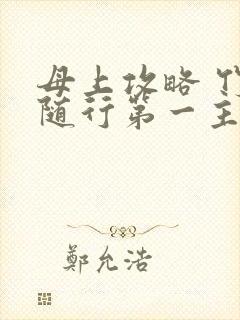 母上攻略
随行第一主
鄭允浩